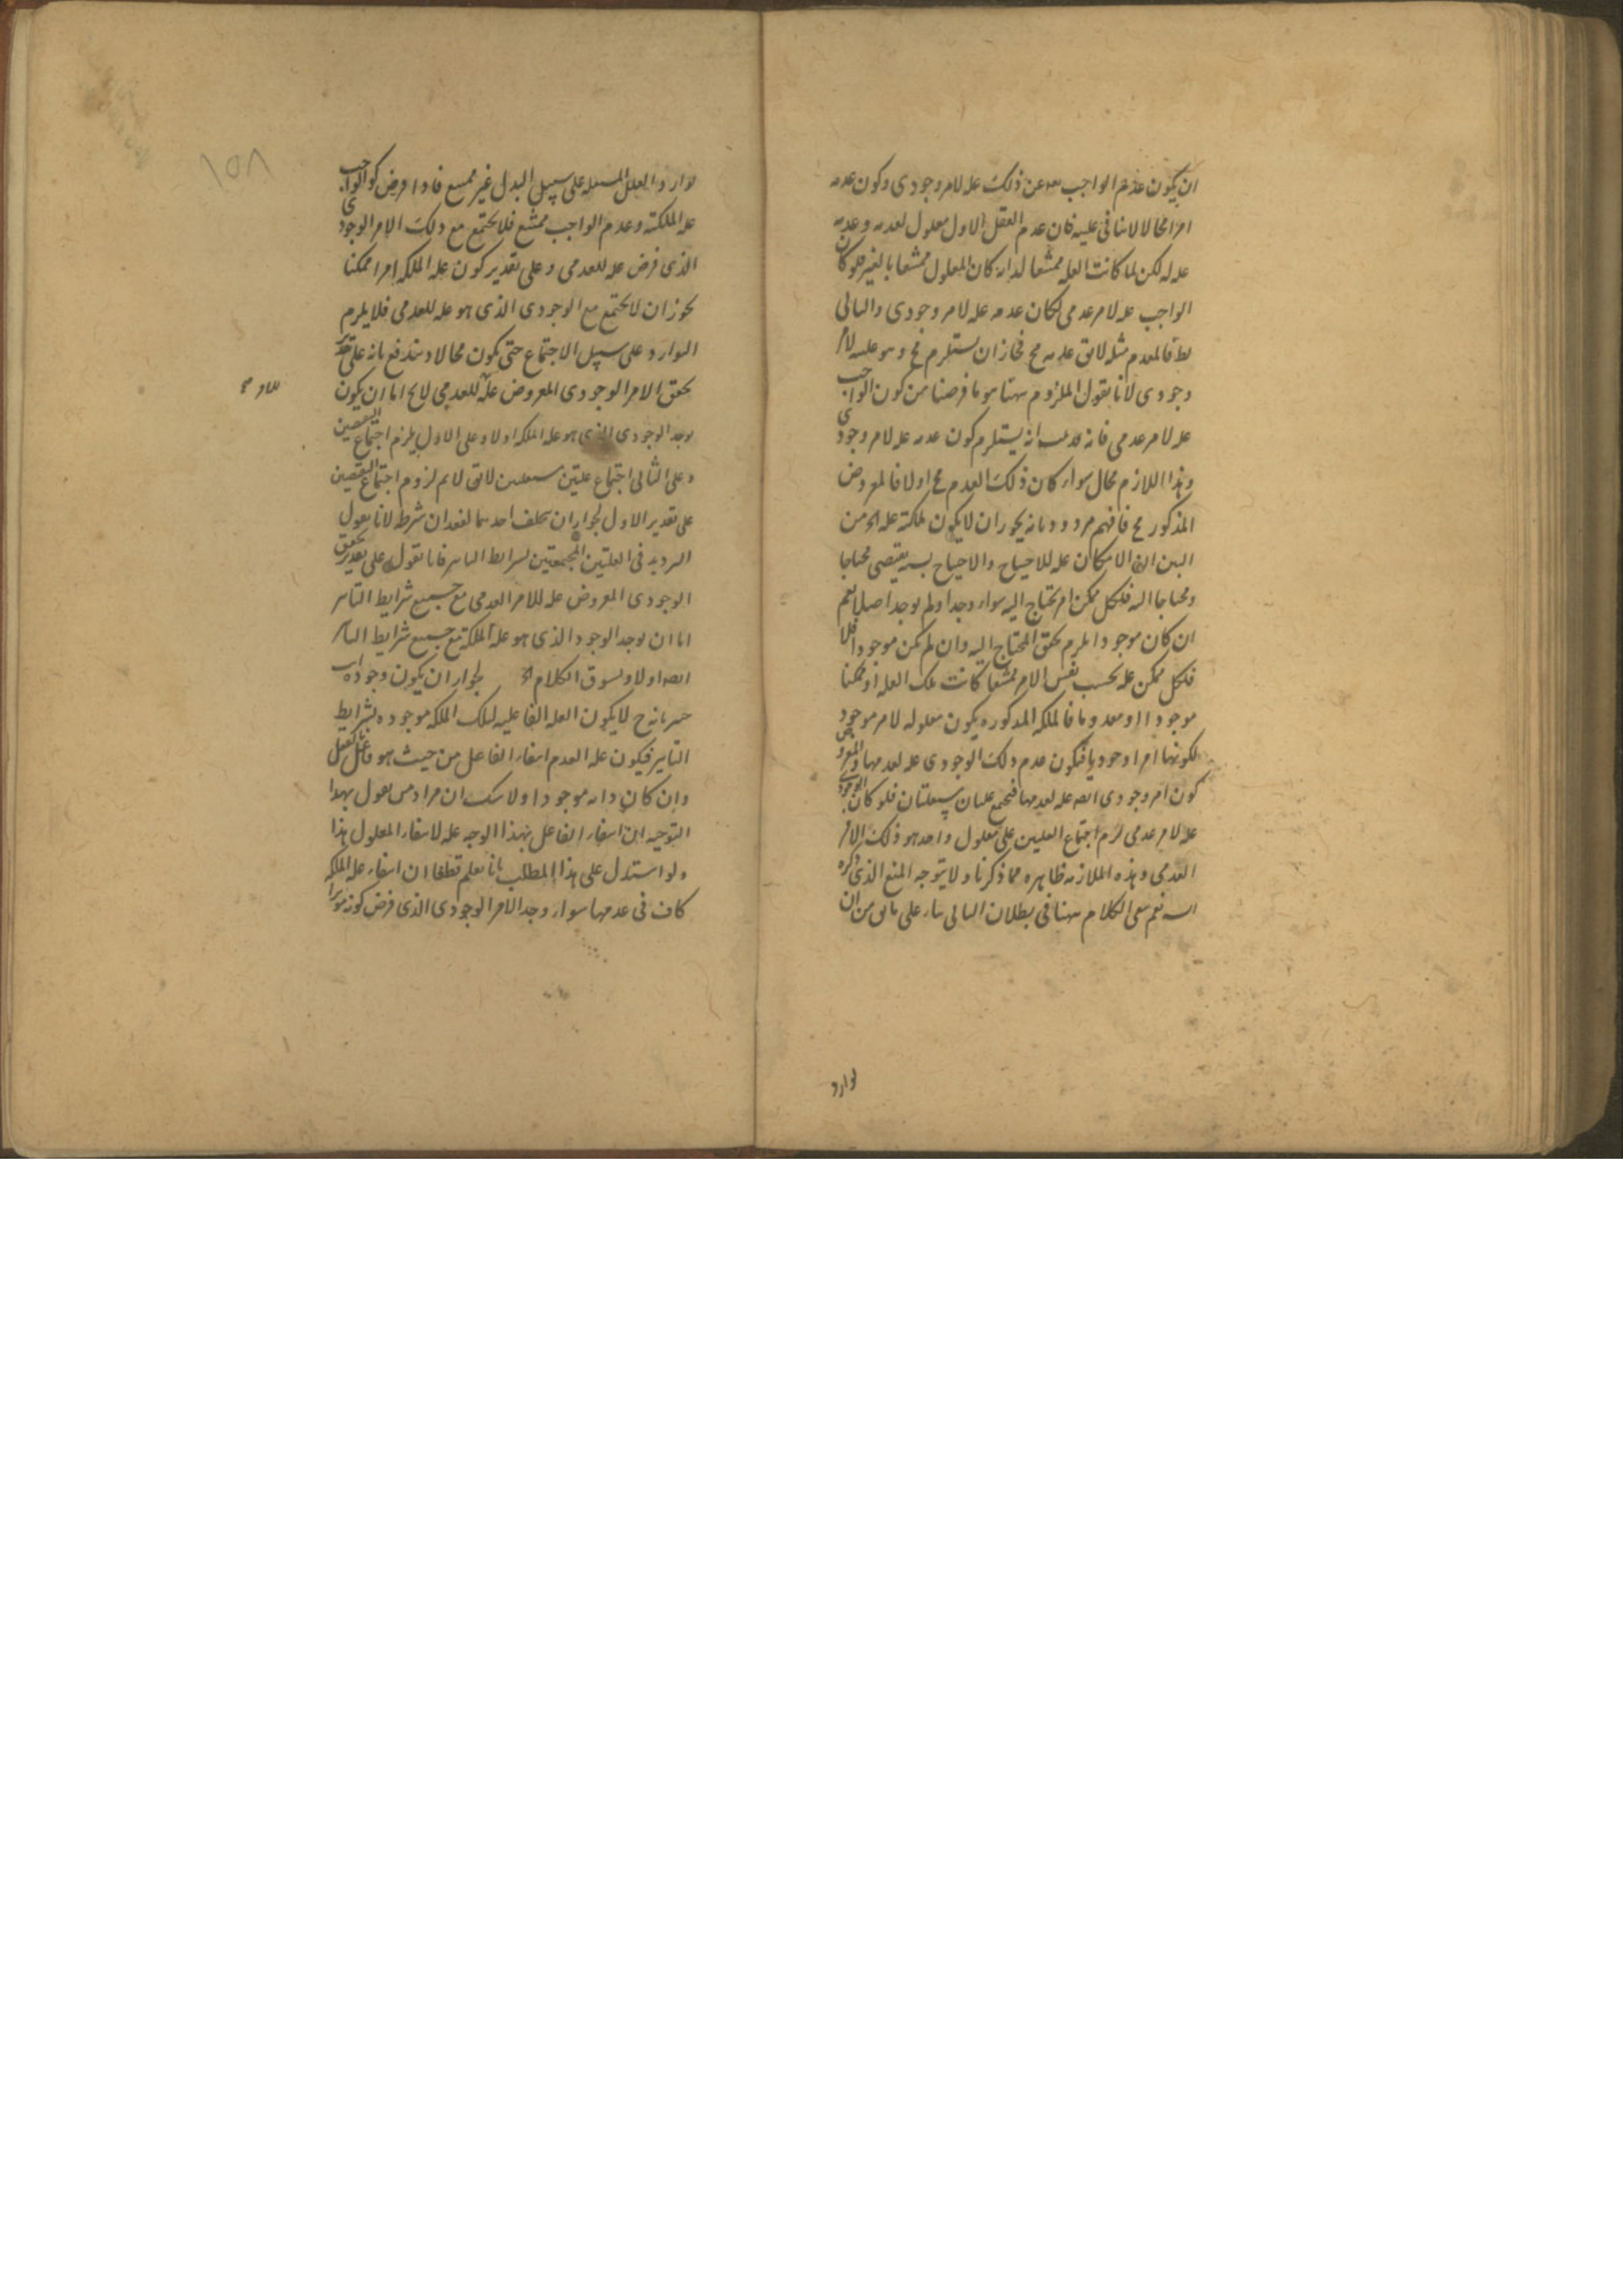 ان يكون عدم الواجب عن ذلك عله لامر وجودى وكون عدمه
امرا محالا لا ينافى عليته فان عدم العقل الاول معلول لعدمه وعدمه
عله له لكن لما كانت العله ممتنعا لذاته كان المعلول ممتنعا بالغير فلو كان
الواجب عله لامر عدمى لكان عدمه عله لامر وجودى والتالى
بط فالمقدم مثله لا يق عدمه مح فجاز ان يستلزم مح وهو عليته لامر
وجودى لانا نقول الملزوم ههنا هو ما فرضنا من كون الواجب
عله لامر عدمى فانه انه يستلزم كون عدمه عله لامر وجودى
وهذا اللازم محال سواء كان ذلك العدم مح اولا فالمفروض
المذكور مح فافهم مردود بانه يجوز ان لا يكون لملكته عله من
البين ان الامكان عله للاحتياج والاحتياج يقتضى محتاجا
ومحتاجا اليه فلكل ممكن امر يحتاج اليه سواء وجد او لم يوجد اصلا نعم
ان كان موجودا يلزم تحقق المحتاج اليه وان لم يكن موجودا فلا
فلكل ممكن عله بحسب نفس الامر ممتنعا كانت تلك العله او ممكنا
موجودا او معدوما فالملكه المذكوره يكون معلوله لامر موجود
لكونها امرا وجوديا فيكون عدم ذلك الوجودى عله لعدمها والمفروض
كون امر وجودى ايضه عله لعدمها فتجتمع علتان مستقلتان فلو كان الوجودى
عله لامر عدمى لزم اجتماع العلتين على معلول واحد هو ذلك الامر
العدمى وهذه الملازمه ظاهره مما ذكرنا ولا يتوجه المنع الذى ذكره
نعم بقى الكلام ههنا فى بطلان التالى بناء على ما يق من ان
توارد
١٥٨
توارد العلل المستقله على سبيل البدل غير ممتنع فاذا فرض كون الواجب
عله الملكة وعدم الواجب ممتنع فلا يجتمع مع ذلك الامر الوجودى
الذى فرض عله للعدمى وعلى تقدير كون عله الملكه امرا ممكنا
يجوز ان لا يجتمع مع الوجودى الذى هو عله للعدمى فلا يلزم
التوارد على سبيل الاجتماع حتى يكون محالا ويندفع بانه على تقدير
تحقق الامر الوجودى المفروض علة للعدمى لا يخ اما ان يكون
يوجد الوجودى الذى هو عله الملكه اولا وعلى الاول يلزم اجتماع النقيضين
وعلى الثانى اجتماع علتين مستقلتين لا يق لا نم لزوم اجتماع النقيضين
على تقدير الاول لجواز ان يتخلف احدهما لفقدان شرطه لانا نقول
الترديد فى العلتين المجتمعتين لشرايط التاثير فانا نقول على تقدير تحقق
الوجودى المفروض عله للامر العدمى مع جميع شرايط التاثير
اما ان يوجد الوجود الذى هو عله الملكة مع جميع شرايط التاثير
ايضه اولا ونسوق الكلام لجواز ان يكون وجوده
بانه ح لا يكون العله الفاعليه لتلك الملكه موجوده بشرايط
التاثير فيكون عله العدم انتفاء الفاعل من حيث هو فاعل بالفعل
وان كان ذاته موجودا ولا شك ان مراد من يقول بهذا
التوجيه ان انتفاء الفاعل بهذا الوجه عله لانتفاء المعلول هذا
ولو استدل على هذا المطلب بانا نعلم قطعا ان انتفاء عله الملكه
كاف فى عدمها سواء وجد الامر الوجودى الذى فرض كونه موثرا